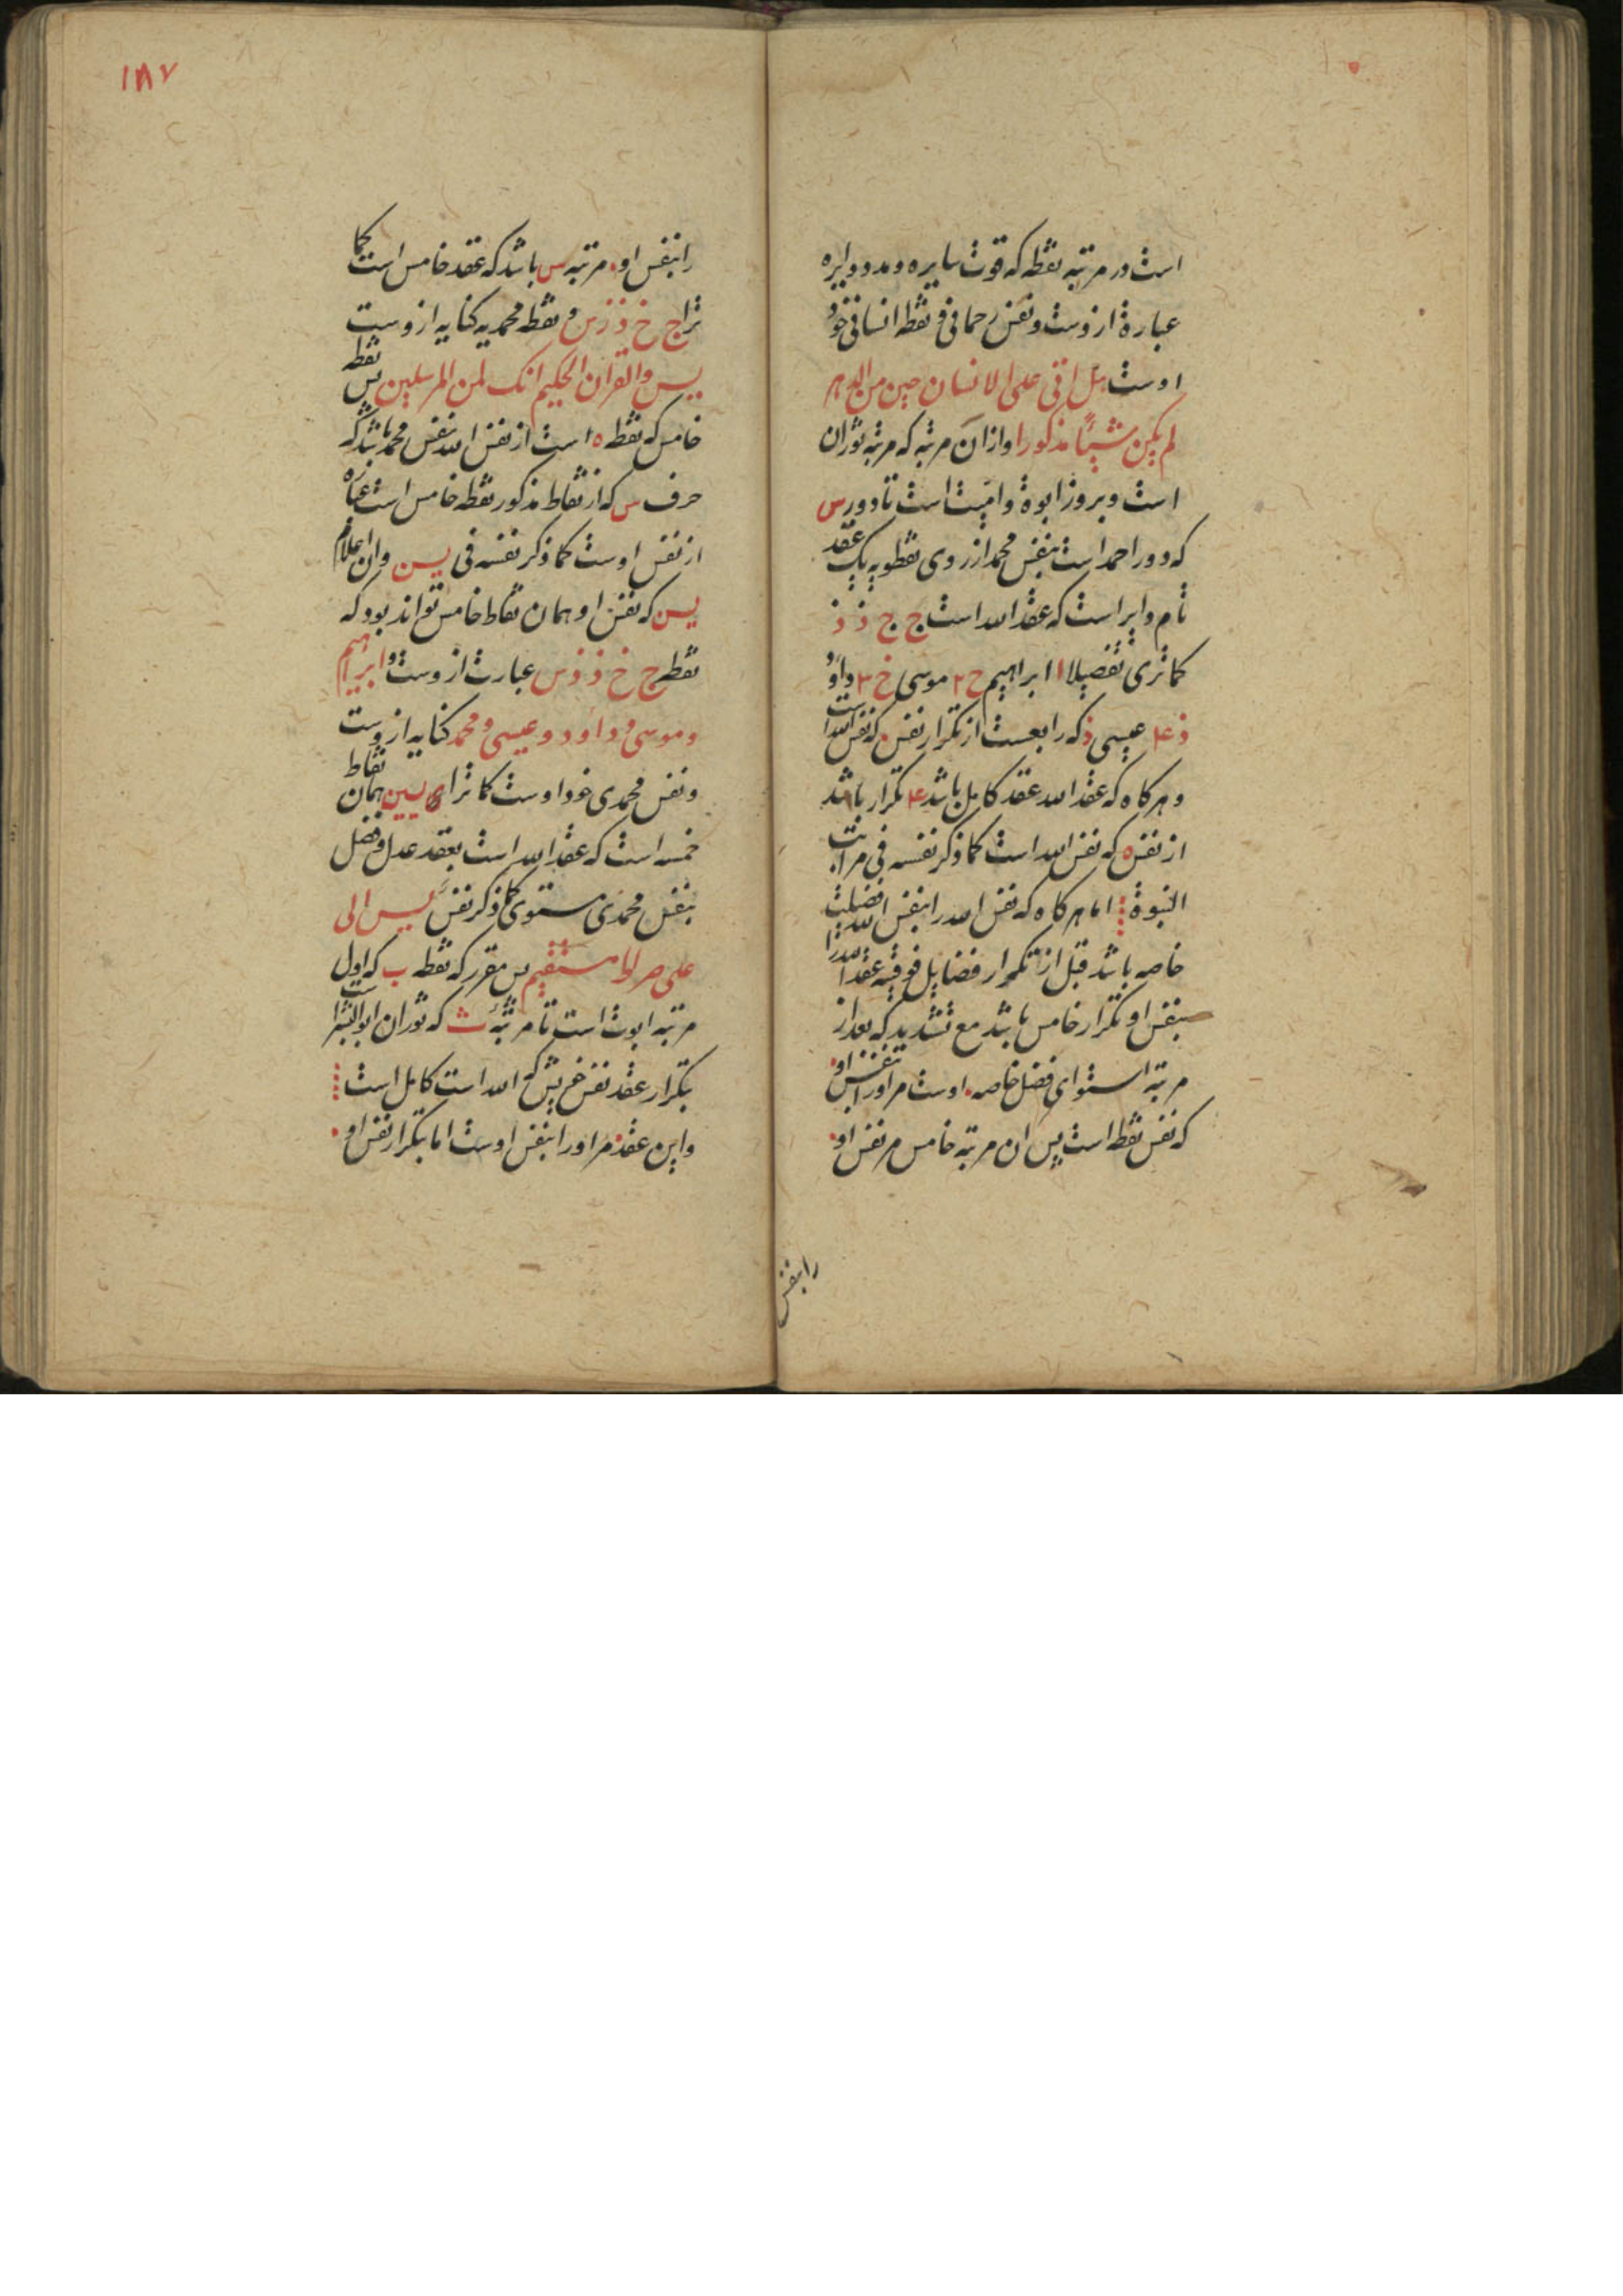 است در مرتبه نقطه که قوت سایره و مدد و دایره
عبارة از وست و نفس رحمانی و نقطه انسانی خود
اوست هل اتی علی الانسان حین من الدهر
لم یکن شیئا مذکورا و ازان مرتبه که مرتبه توران
است و بروز ابوة و امیت است تا دور س
که دور احمد است بنفس محمد از روی نقطویه یک عقد
تام دایر است که عقد الله است ج ج ذ ذ
کما تری تفصیلا ۱ ابراهیم ح ۲ موسی خ ۳ داود
ذ ۴ عیسی ذ که رابعست از تکرار نفس که نفس الله است
و هر کاه که عقد الله عقد کامل باشد ۴ تکرار باشد
از نفس ه که نفس الله است کما ذکر نفسه فی مراتب
النبوة اما هر کاه که نفس الله را بنفس الله فضلیت
خاصه باشد قبل از تکرار فضایل فوقیه عقد الله را
بنفس او تکرار خامس باشد مع تشدید که بعد از
مرتبه استوای فضل خاصه اوست مر او را بنفس او
که نفس نقطه است پس ان مرتبه خامس مر نفس او
را بنفس
۱۸۷
را بنفس او مرتبه س باشد که عقد خامس است کما
تراج خ ذ ذ س و نقطه محمدیه کنایه از وست
یس والقران الحکیم انک لمن المرسلین پس نقطه
خامس که نقطه ه است از نفس الله بنفس محمد باشد که
حرف س که از نقاط مذکور نقطه خامس است عبارة
از نفس اوست کما ذکر نفسه فی یسن و ان اعلام
یسن که نفس او همان نقاط خامس تواند بود که
نقط ج خ ذ ذ س عبارت از وست و ابراهیم
و موسی و داود و عیسی و محمد کنایه از وست
و نفس محمدی خود اوست کما ترای یسن همان نقاط
خمسه است که عقد الله است بعقد عدل و فضل
بنفس محمدی مستوی کما ذکر نفس یس الی
علی صراط مستقیم پس مقرر که نقطه ب که اول
مرتبه ابوت است تا مرتبه ث که توران ابو البشر است
بتکرار عقد نفس خویش که الله است کامل است
و این عقد مر او را بنفس اوست اما بتکرار نفس او